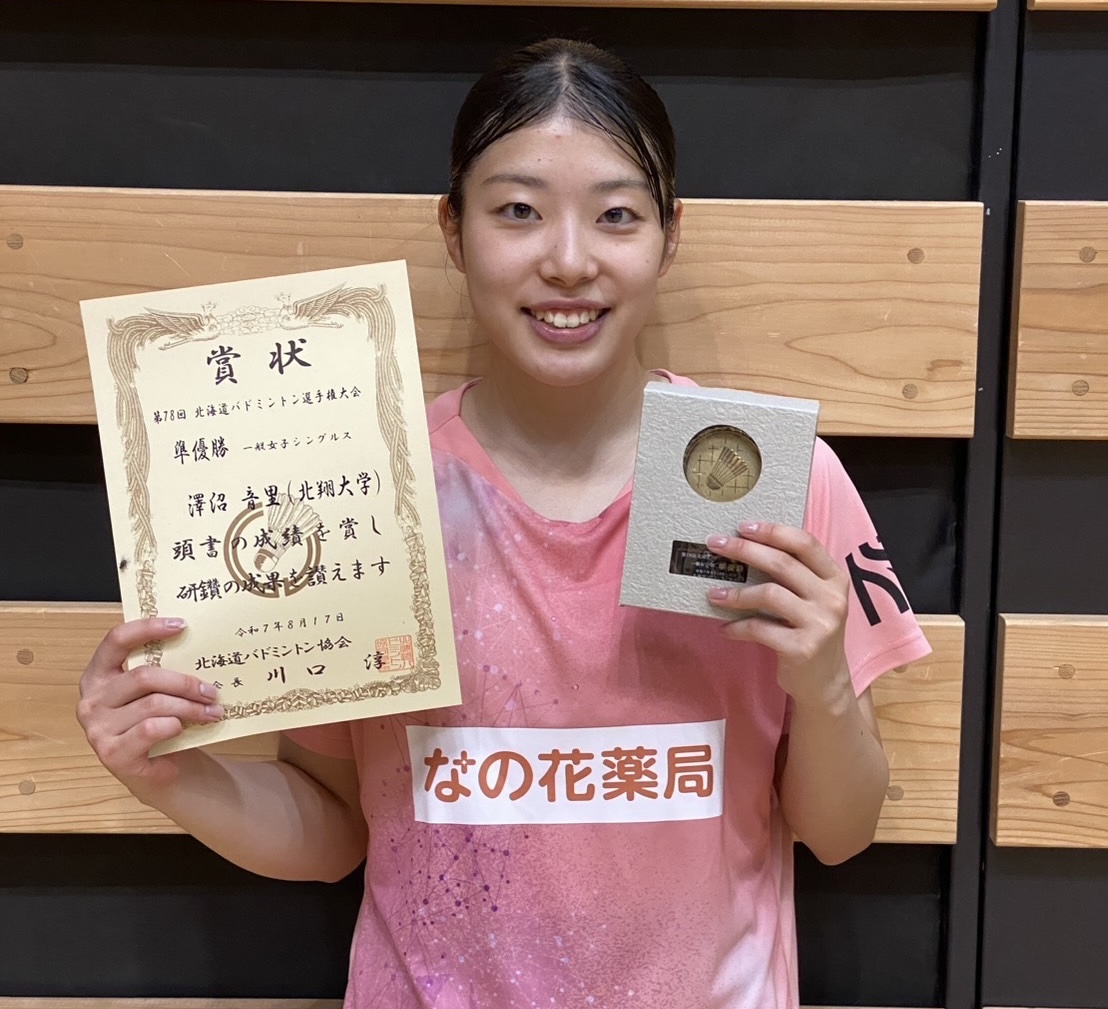 賞状
第78回 北海道バドミントン選手権大会
準優勝 一般女子シングルス
澤沼 音里(北翔大学)
頭書の成績を賞し
研鑽の成果を讃えます
令和7年8月17日
北海道バドミントン協会
会長 川口 淳
なの花薬局